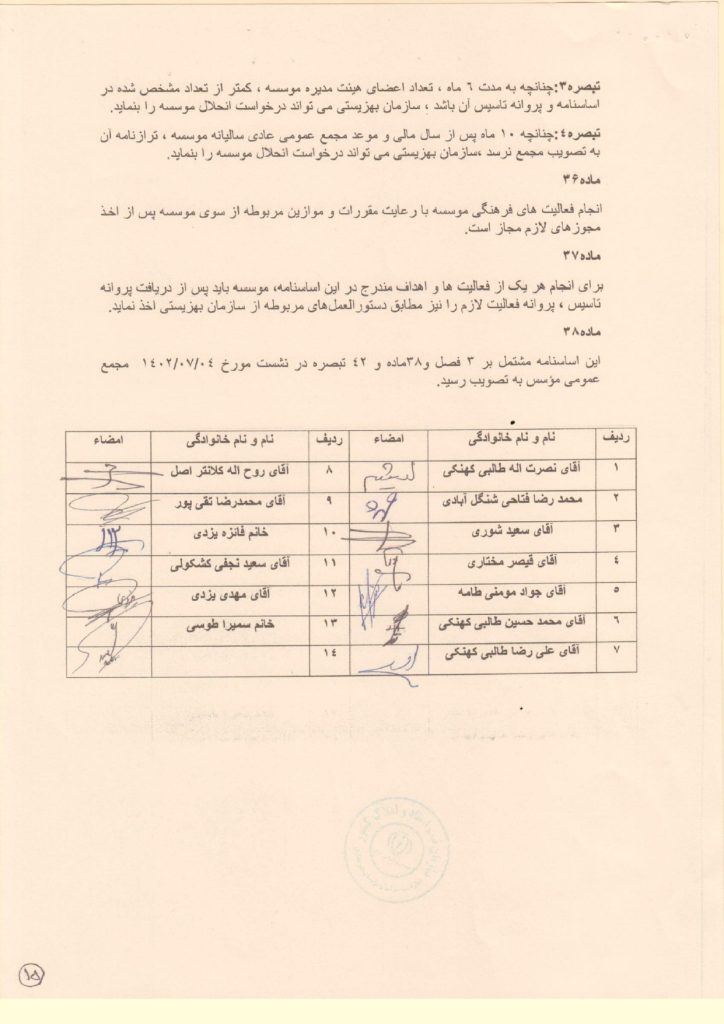 تبصره۳:چنانچه به مدت ۶ ماه ، تعداد اعضای هیئت مدیره موسسه ، کمتر از تعداد مشخص شده در
اساسنامه و پروانه تاسیس آن باشد ، سازمان بهزیستی می تواند درخواست انحلال موسسه را بنماید.
تبصره۴:چنانچه ۱۰ ماه پس از سال مالی و موعد مجمع عمومی عادی سالیانه موسسه ، ترازنامه آن
به تصویب مجمع نرسد ،سازمان بهزیستی می تواند درخواست انحلال موسسه را بنماید.
ماده۳۶
انجام فعالیت های فرهنگی موسسه با رعایت مقررات و موازین مربوطه از سوی موسسه پس از اخذ
مجوزهای لازم مجاز است.
ماده۳۷
برای انجام هر یک از فعالیت ها و اهداف مندرج در این اساسنامه، موسسه باید پس از دریافت پروانه
تاسیس ، پروانه فعالیت لازم را نیز مطابق دستورالعمل‌های مربوطه از سازمان بهزیستی اخذ نماید.
ماده۳۸
این اساسنامه مشتمل بر ۳ فصل و۳۸ماده و ۴۲ تبصره در نشست مورخ ۱۴۰۲/۰۷/۰۴ مجمع
عمومی مؤسس به تصویب رسید.
ردیف نام و نام خانوادگی امضاء ردیف نام و نام خانوادگی امضاء
۱ آقای نصرت اله طالبی کهنکی ۸ آقای روح اله کلانتر اصل
۲ محمد رضا فتاحی شنگل آبادی ۹ آقای محمدرضا تقی پور
۳ آقای سعید شوری ۱۰ خانم فائزه یزدی
۴ آقای قیصر مختاری ۱۱ آقای سعید نجفی کشکولی
۵ آقای جواد مومنی طامه ۱۲ آقای مهدی یزدی
۶ آقای محمد حسین طالبی کهنکی ۱۳ خانم سمیرا طوسی
۷ آقای علی رضا طالبی کهنکی ۱۴
۱۵